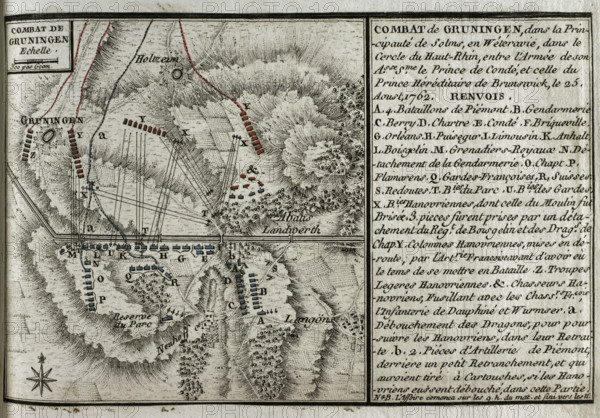 COMBAT DE
GRUNINGEN
Echelle
Holtzeim
GRUNINGEN
Abaus
Landwerth
Reserve
du Parc
Langöns
COMBAT de GRUNINGEN, dans la Prin-
cipauté de Solms, en Wéteravie, dans le
Cercle du Haut-Rhin, entre l'Armée de son
Al.sse S.me le Prince de Condé, et celle du
Prince Héréditaire de Brunswick, le 25.
Aoust, 1762. RENVOIS.
A. 4. Bataillons de Piémont. B. Gendarmerie
C. Berry D. Chartre E. Condé. F. Briqueville
G. Orléans. H. Puisegur I. Limousin. K. Anhalt
L. Boisgelin M. Grenadiers-Royaux N. Dé-
tachement de la Gendarmerie. O. Chapt. P.
Flamarens. Q. Gardes-Françaises, R. Suisses
S. Redoutes. T. B.ies du Parc. U. B.ies des Gardes.
X. B.ies Hanovriennes, dont celle du Moulin fut
Brisée. 3. pieces fûrent prises par un déta-
chement du Rég.t de Boisgelin et des Drag.s de
Chap. Y. Colonnes Hanovriennes, mises en de-
route, par l'Art.rie Francoise avant d'avoir eu
le tems de se mettre en Bataille. Z. Troupes
Legeres Hanovriennes. &. Chasseurs Ha-
novriens, Fusillant avec les Chass.rs Fr.ses
L'Infanterie de Dauphiné et Wurmser. a.
Débouchement des Dragons, pour pour-
suivre les Hanovriens, dans leur Retrai-
te. b. 2. Piéces d'Artillerie de Piémont,
derriere un petit Retranchement, et qui
auroient tiré à Cartouches, si les Hano-
vriens eussent débouché, dans cette Partie.
N.a B. L'Affaire comença sur les 9. h. du mat. et fini vers les